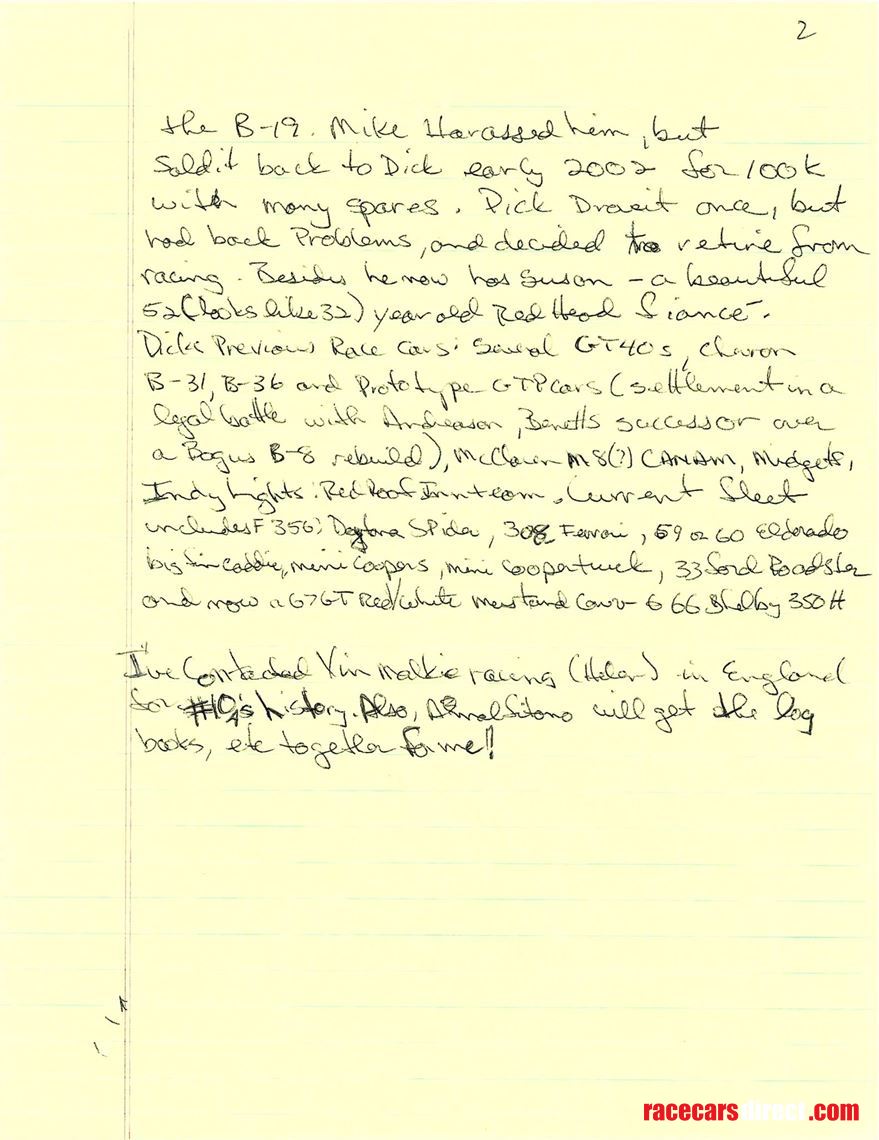 2
the B-19. Mike Harassed him, but
Sold it back to Dick early 2002 for 100k
with many spares. Dick Drove it once, but
had back Problems, and decided to retire from
racing. Besides he now has Susan - a beautiful
52 (looks like 32) year old Red Head fiance.
Dicks Previous Race cars: Several GT40s,
B-31, B-36 and Prototype GTP cars (settlement in a
legal battle with Andreason, successor over
a Bogus B-8 rebuild), McClaren M8(?) CANAM, Midgets,
Indy Lights: Red Roof Inn team. Current fleet
includes F 356; Daytona Spider, 308 Ferrari, 59 or 60 Eldorado
big fin Caddie, mini Coopers, mini Cooper truck, 33 ford Roadster
and now a 67 GT Red/White & 66 Shelby 350H
I've Contacted Vin Malkie racing (Helen) in England
for #10's history. Also, will get the log
books, etc together for me!
racecarsdirect.com